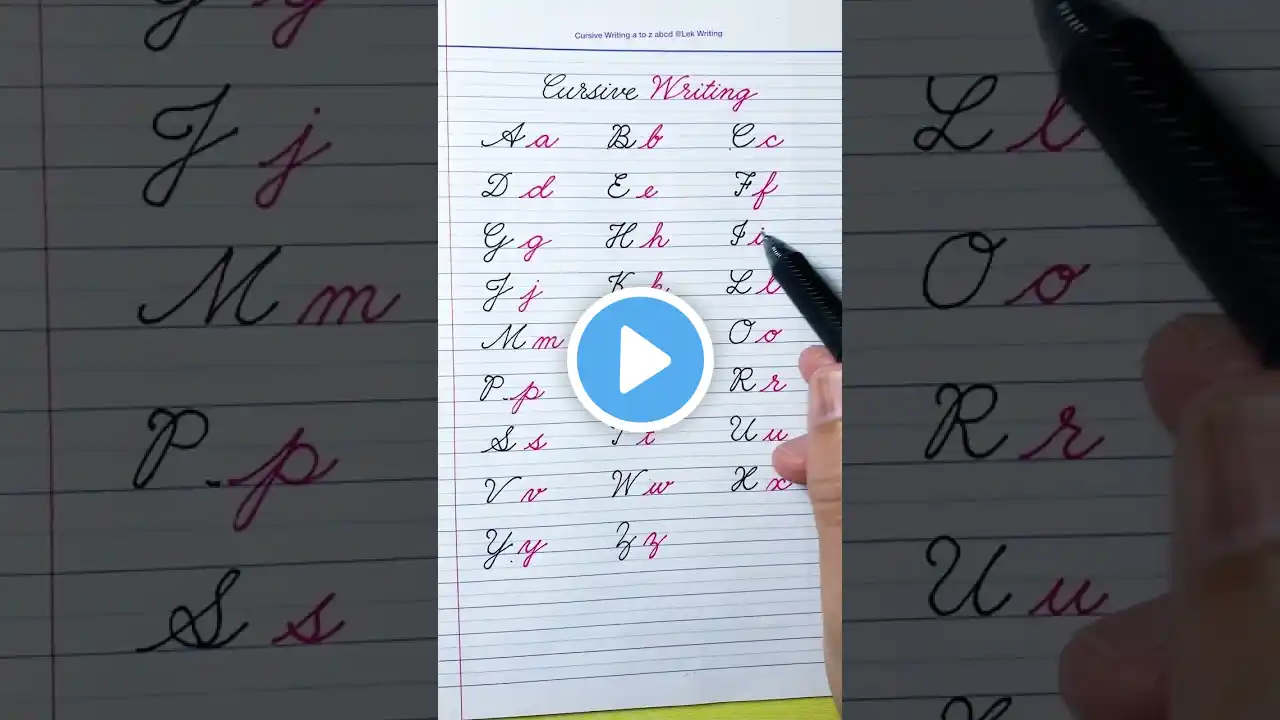 Cursive Writing a to z abcd @Lek Writing
Cursive Writing
A a B b C c
D d E e F f
G g H h I i
J j K k L l
M m O o
P p R r
S s T t U u
V v W w X x
Y y Z z